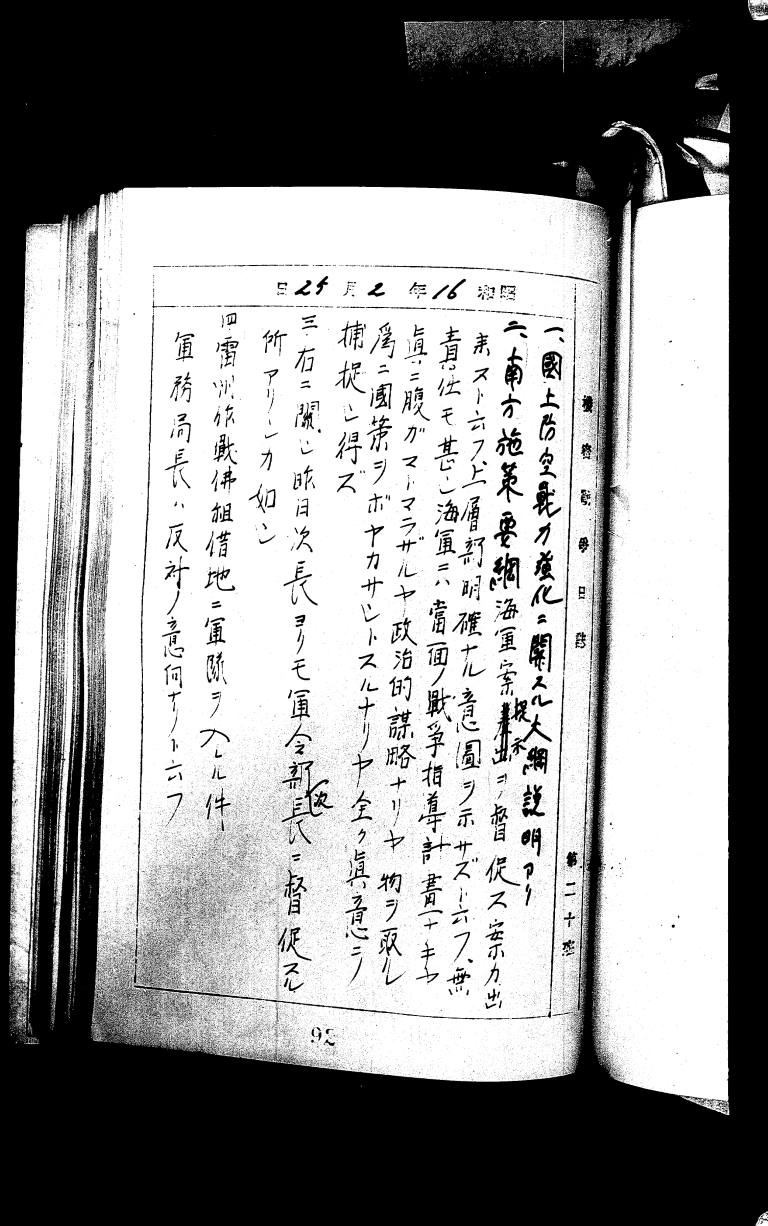 機密戰爭日誌
第二十班
昭和16年2月25日
一、國土防空戰力強化ニ關スル大綱説明アリ
二、南方施策要綱海軍案提示ヲ督促ス案カ出
来ストニ云フ上層部明確ナル意圖ヲ示サズト云フ、無
責任モ甚シ海軍ニハ當面ノ戰爭指導計畫ナキヤ
眞ニ腹ガマトマラザルヤ政治的謀略ナリヤ物ヲ取ル
爲ニ國策ヲボヤカサントスルナリヤ全ク眞意ヲ
捕捉シ得ズ
三、右ニ關シ昨日次長ヨリモ軍令部次長ニ督促スル
所アリシカ如シ
四、雷州作戰佛租借地ニ軍隊ヲ入レル件、
軍務局長ハ反対ノ意向ナリト云フ
92